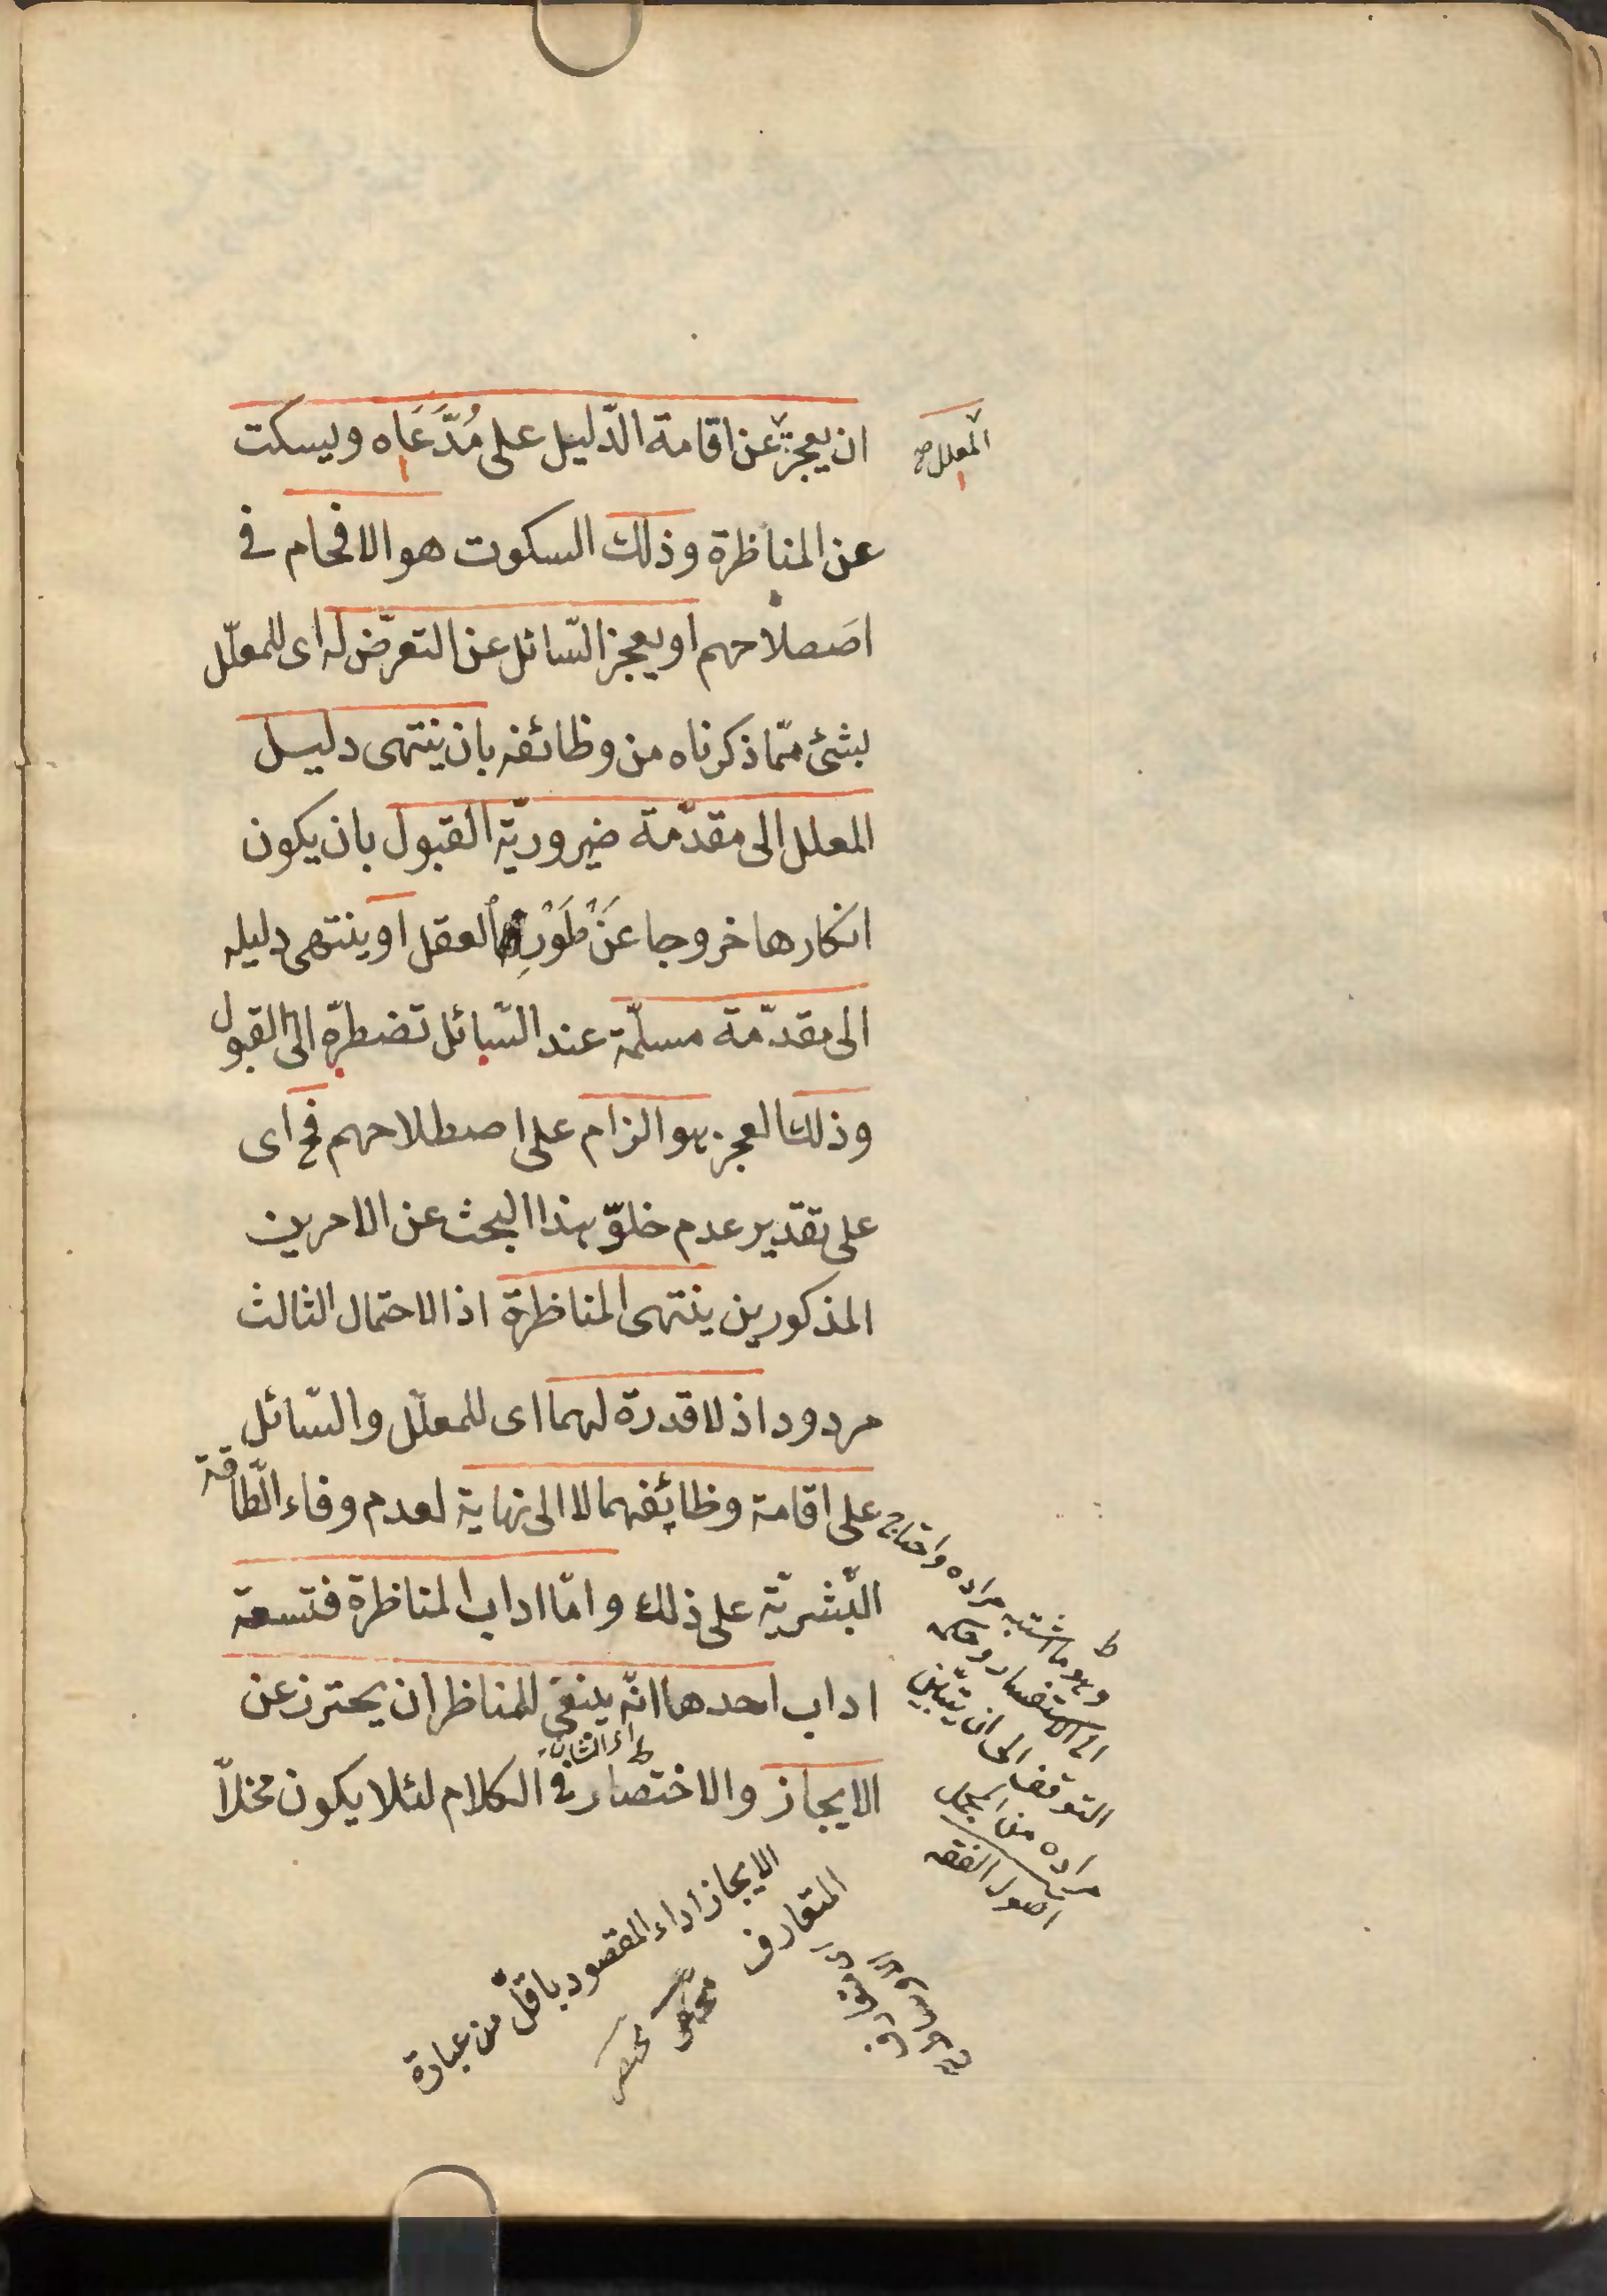 ان يعجز عن اقامة الدّليل على مُدَّعَاه ويسكت
المعلل صح
عن المناظرة وذلك السكوت هو الافحام فى
اصَصلاحهم او يعجز السّائل عن التعرّض له اى للمعلّل
بشئ ممّا ذكرناه من وظائفه بان ينتهى دليل
المعلل الى مقدّمة ضروريّة القبول بان يكون
انكارها خروجا عَنْ طَوْرِ العقل او ينتهى دليله
الى مقدّمة مسلّمة عند السّائل تضطرّه الى القبول
وذلك العجز هو الزام على اصطلاحهم فح اى
على تقدير عدم خلوّ هذا البحث عن الامرين
المذكورين ينتهى المناظرة اذ الاحتمال الثالث
مردود اذ لا قدرة لهما اى للمعلّل والسّائل
على اقامة وظائفهما لا الى نهاية لعدم وفاء الطّاقة
البشريّة على ذلك وامّا اداب المناظرة فتسعة
اداب احدها انّه ينبغى للمناظر ان يحترز عن
الايجاز والاختصار فى الكلام لئلا يكون مخلّا
ط وهو ما اشتبه مراده واحتاج
الى الاستفسار وحكمه
التوقف الى ان يتبيّن
مراده من المجمل
اصول الفقه
الايجاز اداء المقصود باقلّ من عبارة
المتعارف
مختصر